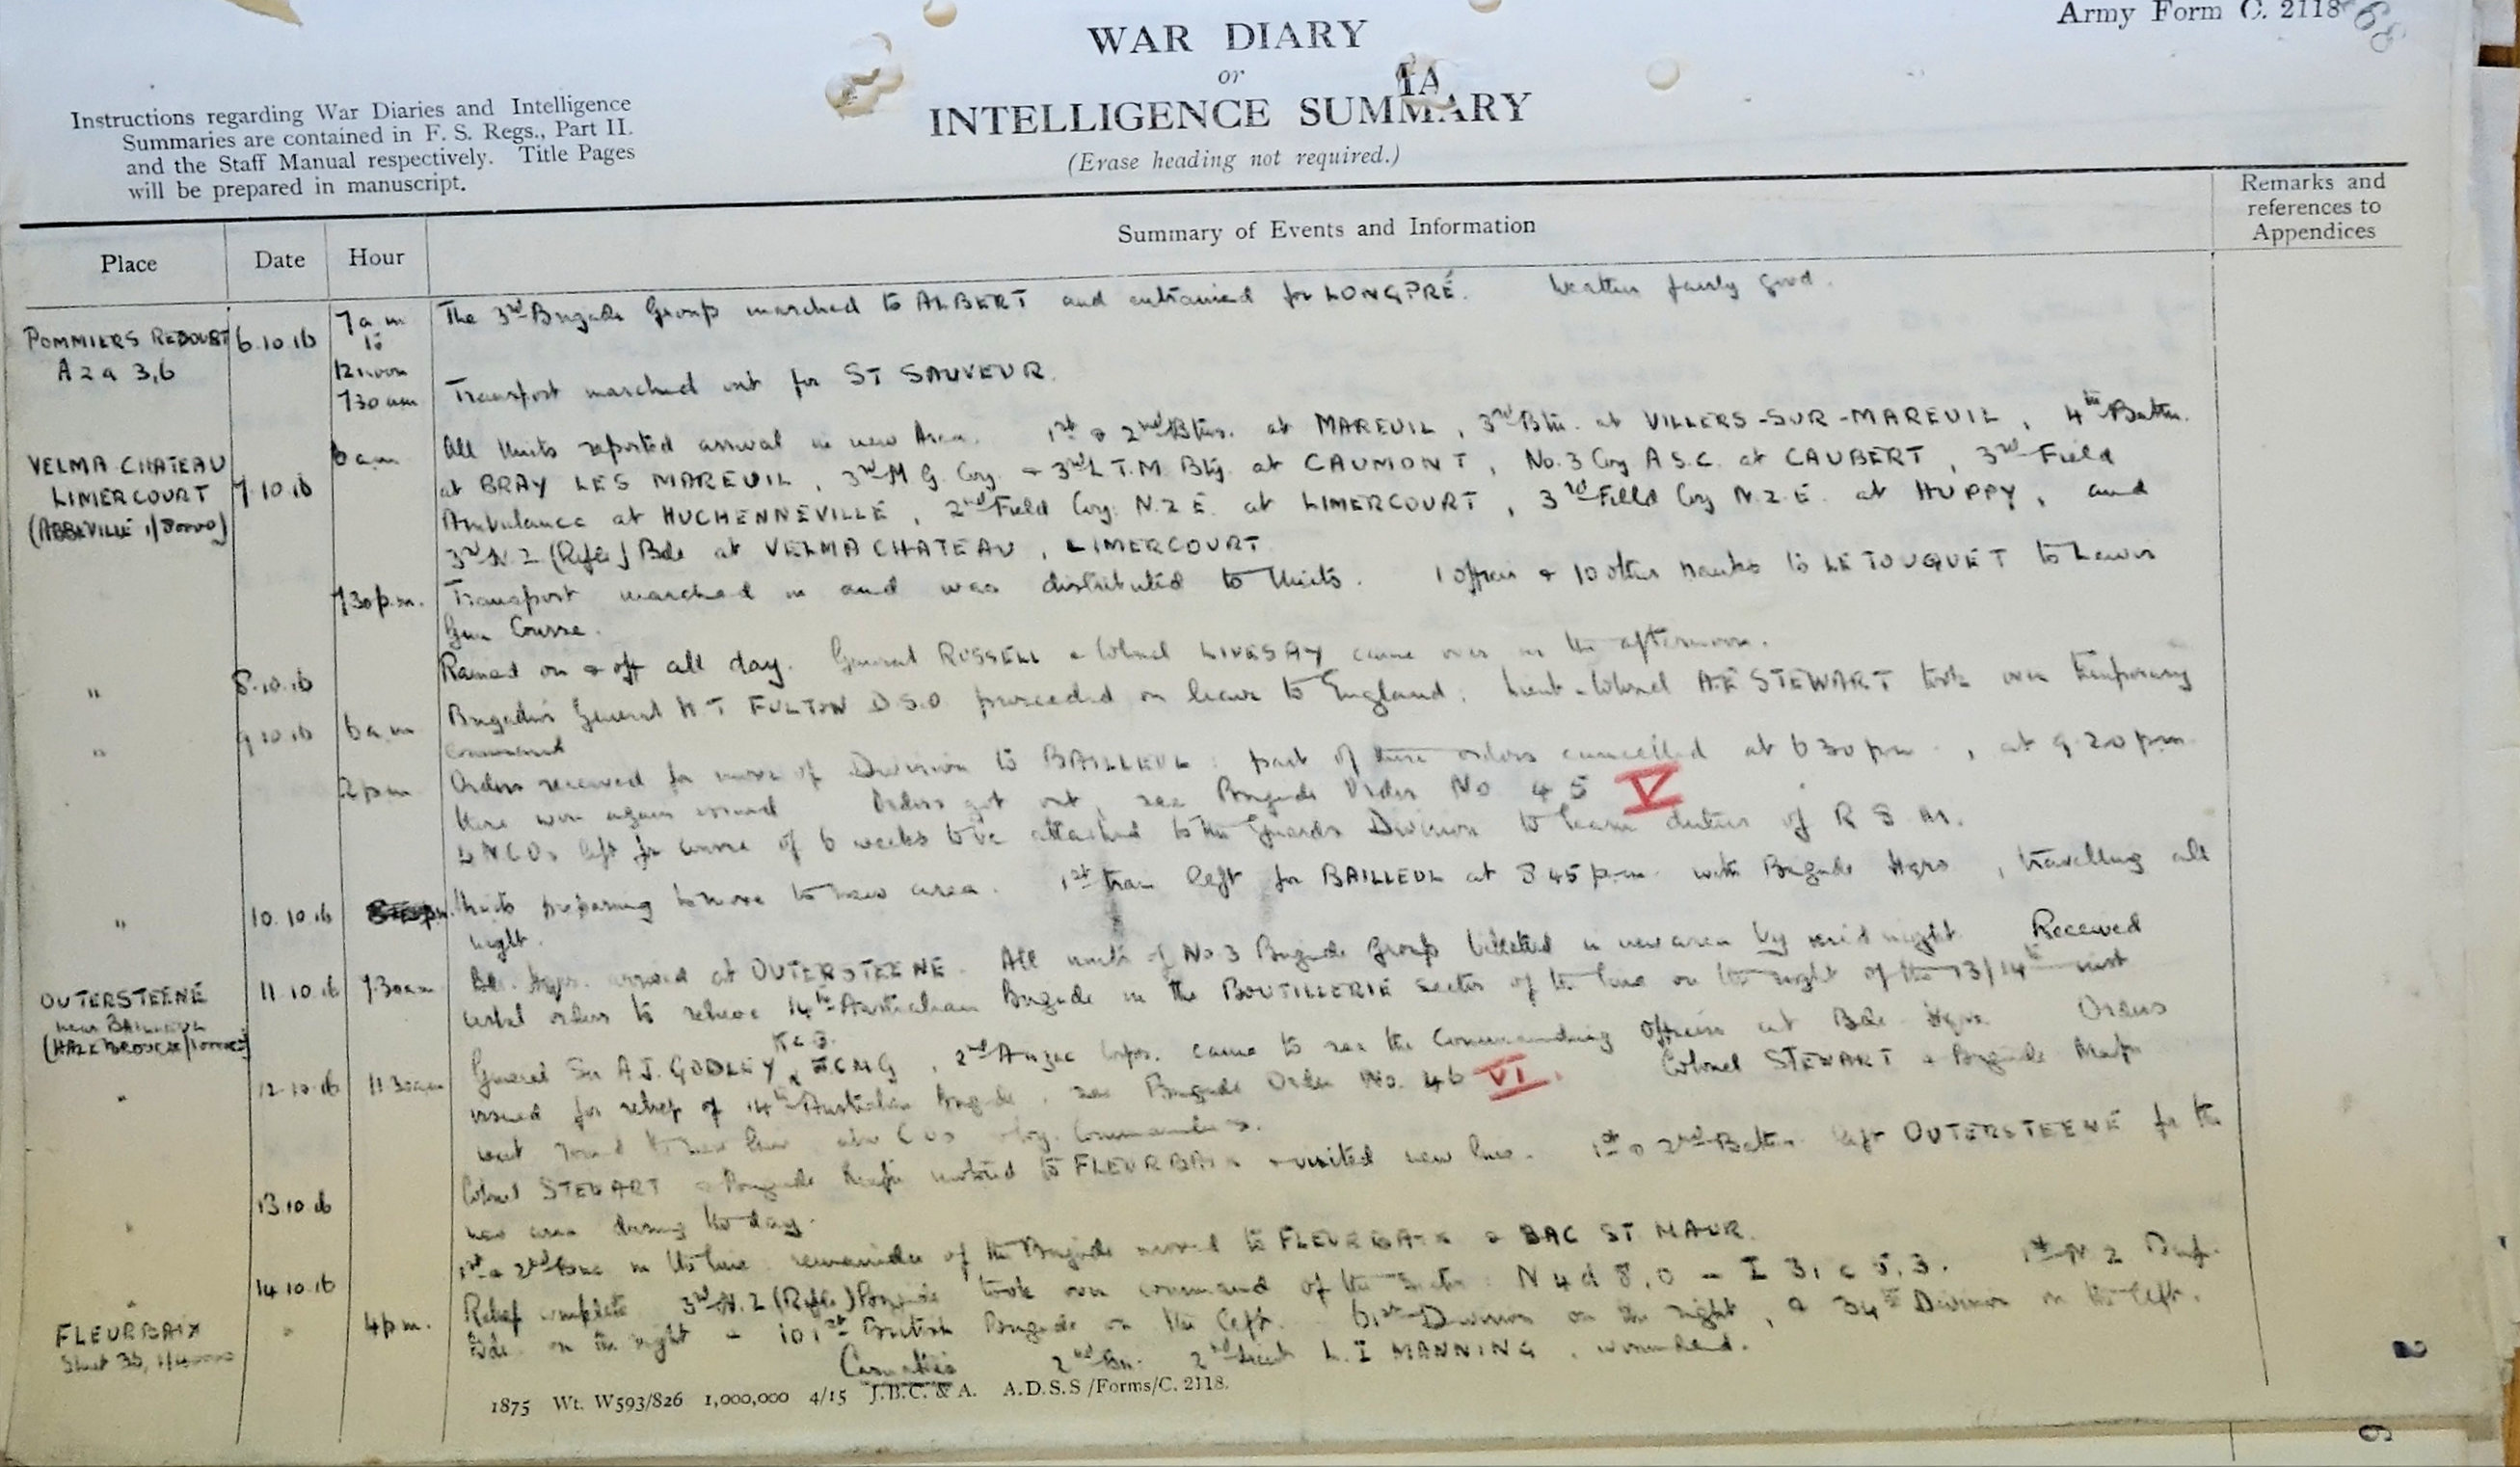 Army Form C. 2118
68
WAR DIARY
or
1A
INTELLIGENCE SUMMARY
(Erase heading not required.)
Instructions regarding War Diaries and Intelligence
Summaries are contained in F. S. Regs., Part II.
and the Staff Manual respectively. Title Pages
will be prepared in manuscript.
Place Date Hour Summary of Events and Information Remarks and
references to
Appendices
POMMIERS REDOUBT 6.10.16 7 a m The 3rd Brigade Group marched to ALBERT and entrained for LONGPRÉ. Weather fairly good.
A 2 a 3,6 to
12 noon
730 am Transport marched out for ST SAUVEUR.
VELMA CHATEAU 6 am All Units reported arrival in new Area. 1st & 2nd Btns. at MAREUIL, 3rd Btn. at VILLERS-SUR-MAREUIL, 4th Battn.
LIMERCOURT 7.10.16 at BRAY LES MAREUIL, 3rd M G. Coy. & 3rd L T.M. Bty. at CAUMONT, No. 3 Coy A.S.C. at CAUBERT, 3rd Field
(ABBEVILLE 1/80000) Ambulance at HUCHENNEVILLE, 2nd Field Coy. N.Z.E. at LIMERCOURT, 3rd Field Coy N.Z.E. at HUPPY, and
3rd N.Z (Rifle) Bde at VELMA CHATEAU, LIMERCOURT
730 p.m. Transport marched in and was distributed to Units. 1 officer & 10 other ranks to LE TOUQUET to Lewis
Gun Course.
" 8.10.16 Rained on & off all day. General RUSSELL & Colonel LIVESAY came over in the afternoon.
" 9.10.16 6 a.m Brigadier General H T FULTON D.S.O. proceeded on leave to England; Lieut-Colonel A.E STEWART took over temporary
command
2 pm Orders received for move of Division to BAILLEUL: part of these orders cancelled at 6 30 pm, at 9.20 p.m.
these were again issued Orders got out, see Brigade Order No 45 V
4 NCOs left for course of 6 weeks to be attached to the Guards Division to learn duties of R S M.
" 10.10.16 Units preparing to move to new area. 1st train left for BAILLEUL at 8 45 p.m. with Brigade Hqrs, travelling all
night.
OUTERSTEENE 11.10.16 7.30am Bde. Hqrs. arrived at OUTERSTEENE. All units of No 3 Brigade Group billeted in new area by midnight. Received
near BAILLEUL verbal orders to relieve 14th Australian Brigade in the BOUTILLERIE sector of the line on the night of the 13/14th inst
(HAZEBROUCK 1/100000)
" 12.10.16 11.30am General Sir A J. GODLEY K C B. & K.C.M.G, 2nd Anzac Corps. came to see the Commanding Officers at Bde Hqrs Orders
issued for relief of 14th Australian Brigade, see Brigade Order No. 46 VI. Colonel STEWART & Brigade Major
went round the new line also C Os & Coy. Commanders.
" 13.10.16 Colonel STEWART & Brigade Major motored to FLEURBAIX & visited new line. 1st & 2nd Battns left OUTERSTEENE for the
new area during the day.
" 14.10.16 1st & 2nd Btns in the line: remainder of the Brigade moved to FLEURBAIX & BAC ST MAUR.
FLEURBAIX " 4 p.m. Relief complete 3rd N.Z (Rifle) Brigade took over command of the sector: N 4 d 8,0 - I 31 c 5,3. 1st N Z Inf.
Sheet 36, 1/40000 Bde. on the right & 101st British Brigade on the left. 61st Division on the right, & 34th Division on the left.
Casualties 2nd Bn. 2nd Lieut L. I MANNING, wounded.
1875 Wt. W593/826 1,000,000 4/15 J.B.C. & A. A.D.S.S/Forms/C. 2118.